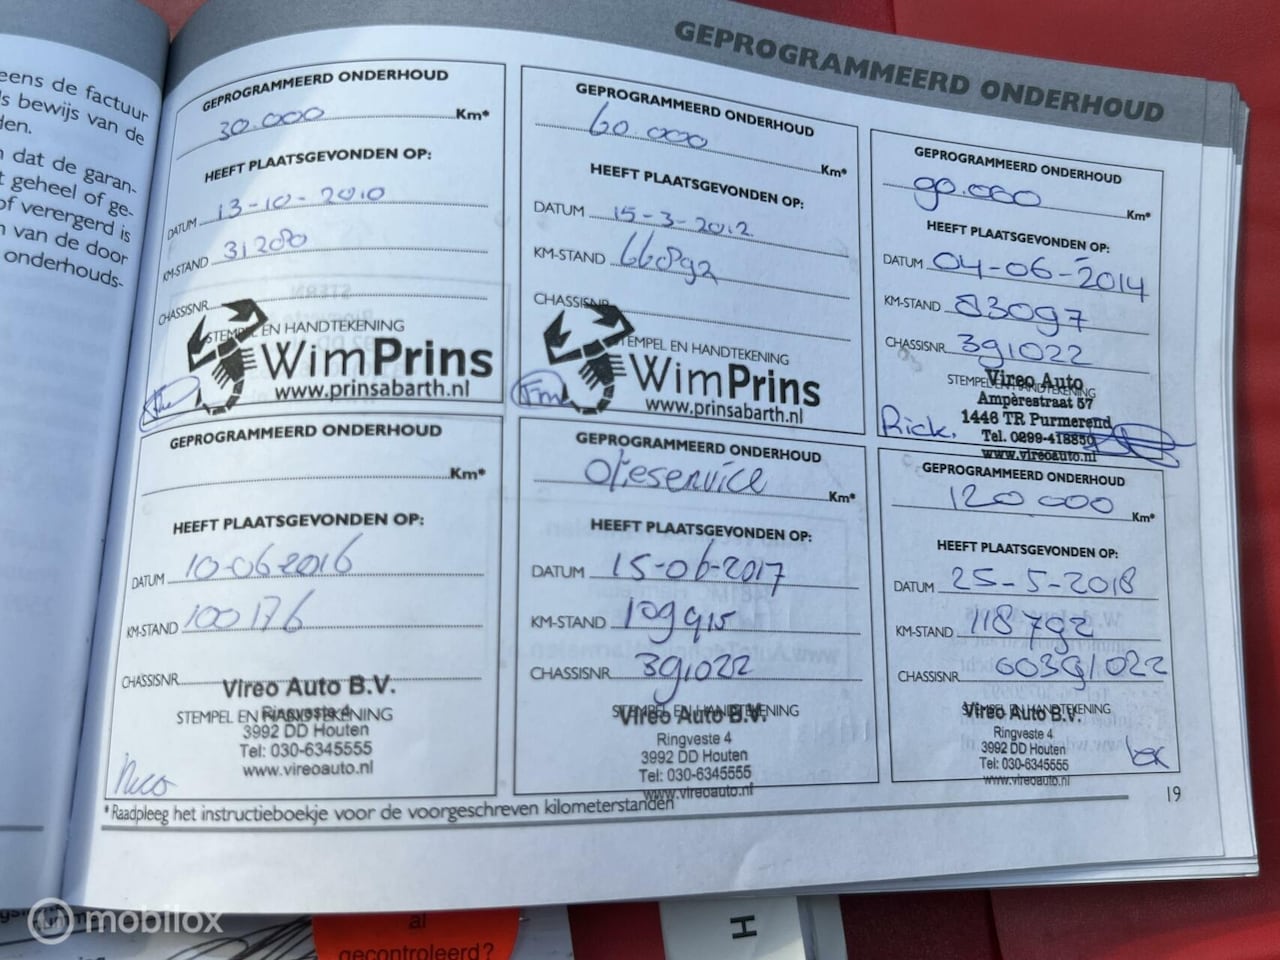 GEPROGRAMMEERD ONDERHOUD
eens de factuur
s bewijs van de
den.
n dat de garan-
t geheel of ge-
of verergerd is
n van de door
onderhouds-
GEPROGRAMMEERD ONDERHOUD
30.000 Km*
HEEFT PLAATSGEVONDEN OP:
DATUM 13-10-2010
KM-STAND 31280
CHASSISNR.
STEMPEL EN HANDTEKENING
WimPrins
www.prinsabarth.nl
GEPROGRAMMEERD ONDERHOUD
60.000 Km*
HEEFT PLAATSGEVONDEN OP:
DATUM 15-3-2012
KM-STAND 66892
CHASSISNR.
STEMPEL EN HANDTEKENING
WimPrins
www.prinsabarth.nl
GEPROGRAMMEERD ONDERHOUD
90.000 Km*
HEEFT PLAATSGEVONDEN OP:
DATUM 04-06-2014
KM-STAND 83097
CHASSISNR. 391022
STEMPEL EN HANDTEKENING
Vireo Auto
Ampèrestraat 57
1446 TR Purmerend
Rick. Tel. 0299-418850
www.vireoauto.nl
GEPROGRAMMEERD ONDERHOUD
Km*
HEEFT PLAATSGEVONDEN OP:
DATUM 10-06-2016
KM-STAND 100176
CHASSISNR.
Vireo Auto B.V.
STEMPEL EN HANDTEKENING
Ringveste 4
3992 DD Houten
Tel: 030-6345555
www.vireoauto.nl
Nico
GEPROGRAMMEERD ONDERHOUD
Olieservice Km*
HEEFT PLAATSGEVONDEN OP:
DATUM 15-06-2017
KM-STAND 109915
CHASSISNR. 391022
STEMPEL EN HANDTEKENING
Vireo Auto B.V.
Ringveste 4
3992 DD Houten
Tel: 030-6345555
www.vireoauto.nl
GEPROGRAMMEERD ONDERHOUD
120.000 Km*
HEEFT PLAATSGEVONDEN OP:
DATUM 25-5-2018
KM-STAND 118792
CHASSISNR. 00391022
STEMPEL EN HANDTEKENING
Vireo Auto B.V.
Ringveste 4
3992 DD Houten
Tel: 030-6345555
www.vireoauto.nl
* Raadpleeg het instructieboekje voor de voorgeschreven kilometerstanden
19
al
gecontroleerd?
H
mobilox